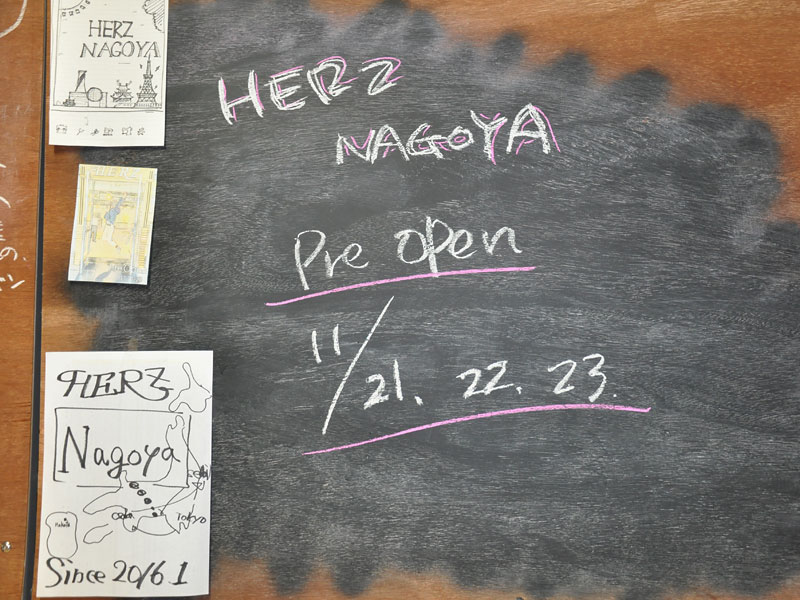 HERZ
NAGOYA
HERZ
NAGOYA
Pre open
11/21. 22. 23.
HERZ
Nagoya
Osaka
Tokyo
Since 2016 1